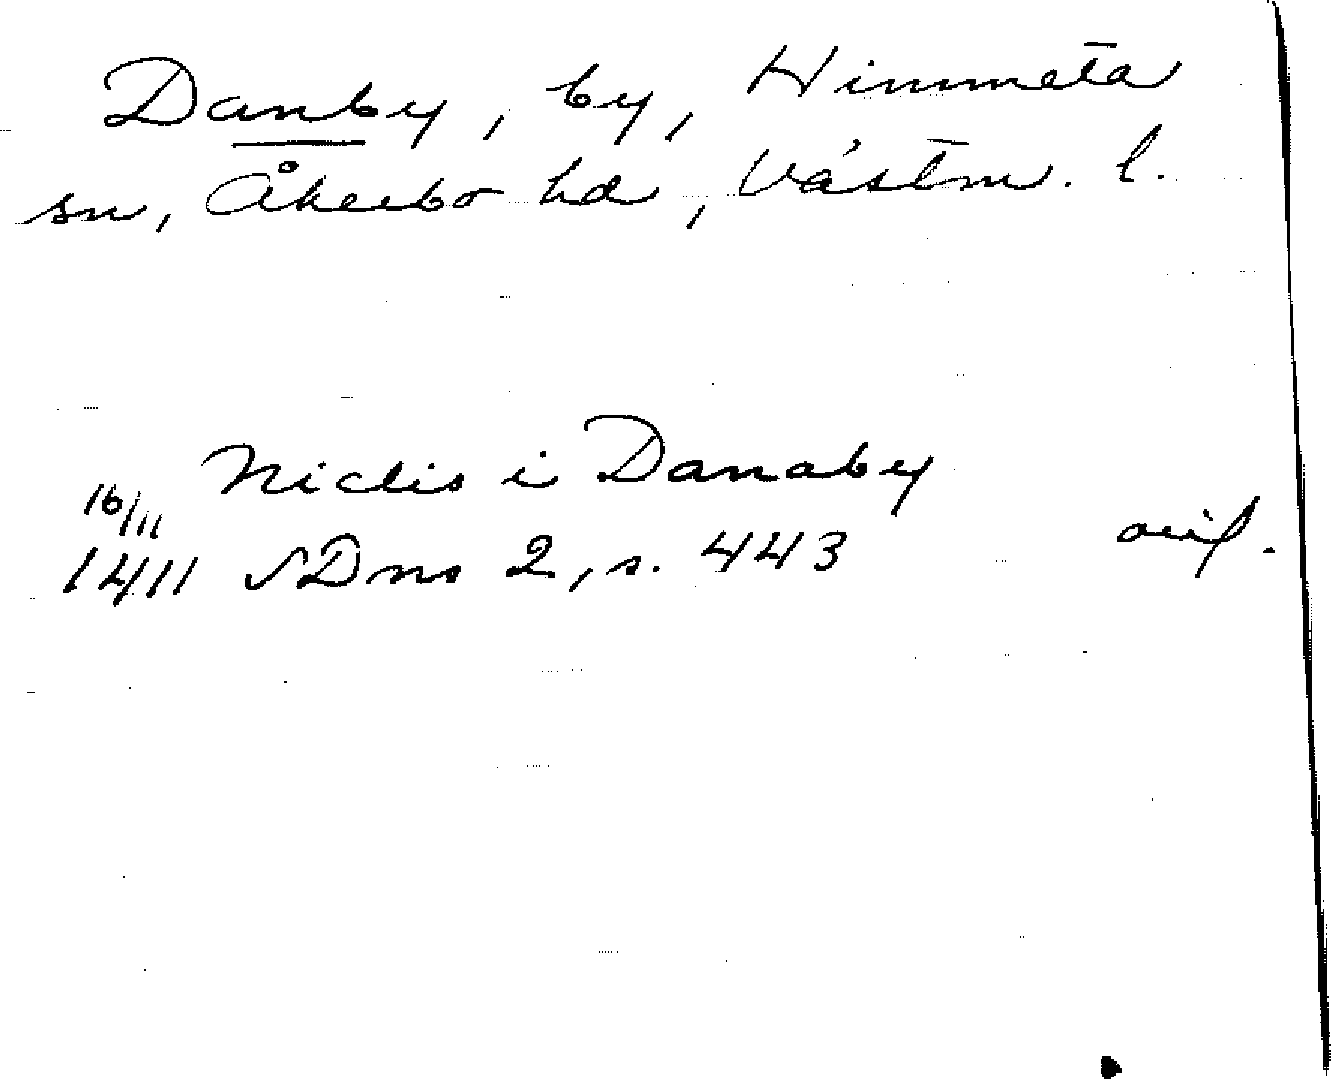 Danby, by, Himmeta
sn, Åkerbo hd, Västm. l.
Niclis i Danaby
16/11
1411 SDns 2, s. 443